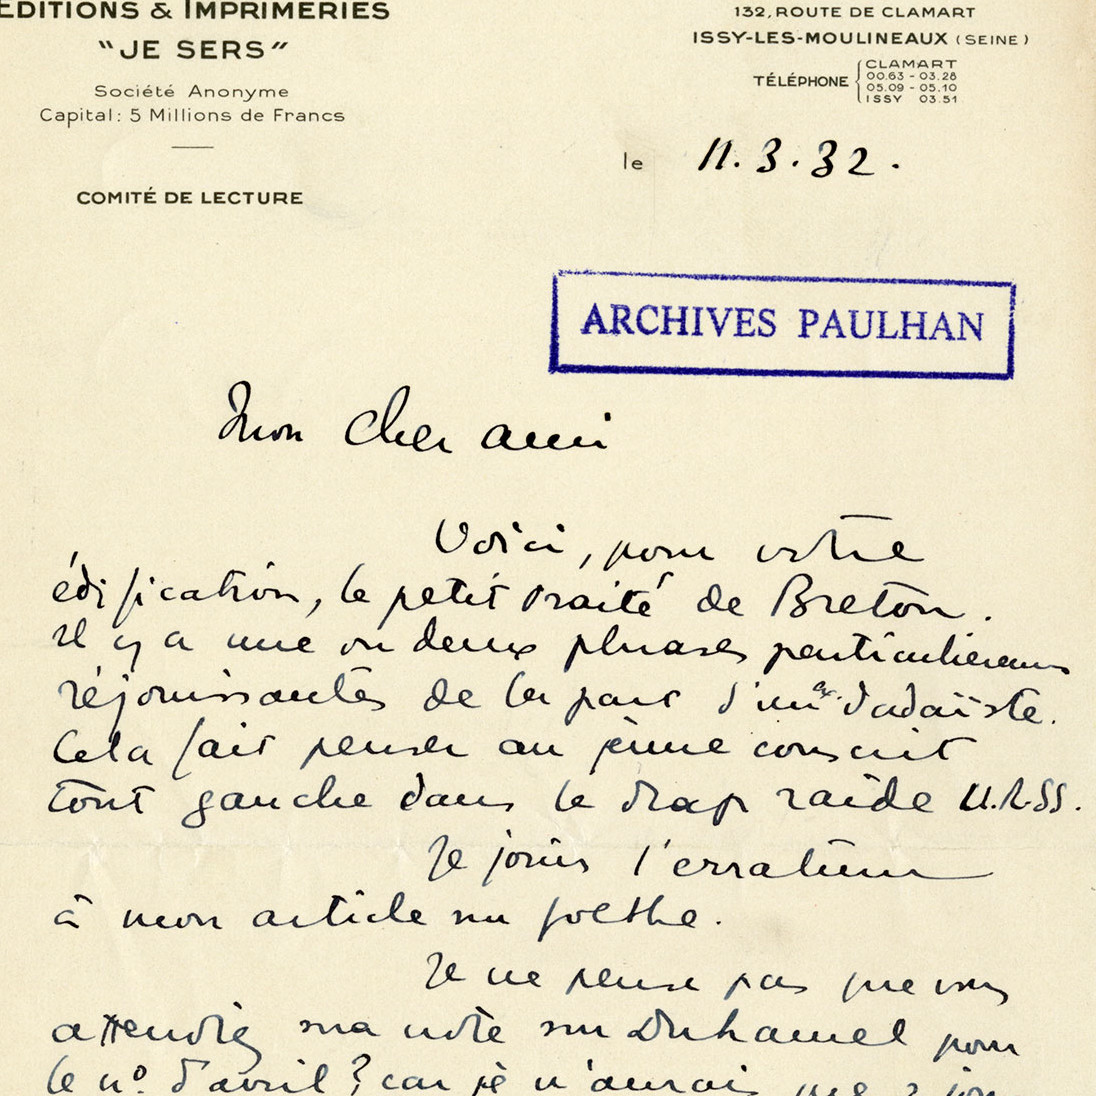 EDITIONS & IMPRIMERIES
"JE SERS"
Société Anonyme
Capital: 5 Millions de Francs
COMITÉ DE LECTURE
132, ROUTE DE CLAMART
ISSY-LES-MOULINEAUX (SEINE)
TÉLÉPHONE
CLAMART
00.63 - 03.28
05.09 - 05.10
ISSY 03.51
le 11.3.32.
ARCHIVES PAULHAN
Mon cher ami
Voici, pour votre
édification, le petit traité de Breton.
Il y a une ou deux phrases particulièrement
réjouissantes de la part d'un ex-dadaïste.
Cela fait penser au jeune conscrit
tout gauche dans le drap raide U.R.SS.
Je joins l'erratum
à mon article sur Goethe.
Je ne pense pas que vous
attendiez ma note sur Duhamel pour
le n° d'avril? car je n'aurais que 2 jours